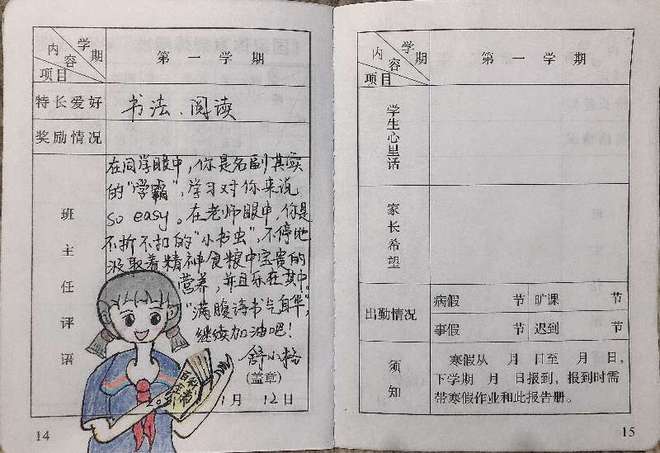 学期
内容
项目
第一学期
特长爱好
书法、阅读
奖励情况
班主任评语
在同学眼中，你是名副其实
的“学霸”，学习对你来说
so easy。在老师眼中，你是
不折不扣的“小书虫”，不停地
汲取着精神食粮中宝贵的
营养，并且乐在其中。
“满腹诗书气自华”，
继续加油吧！
舒小格
(盖章)
1月 12日
14
学期
内容
项目
第一学期
学生心里话
家长希望
出勤情况
病假 节 旷课 节
事假 节 迟到 节
须知
寒假从 月 日至 月 日，
下学期 月 日报到，报到时需
带寒假作业和此报告册。
15